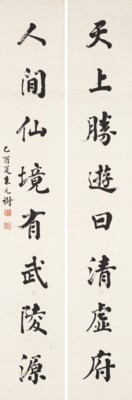 天上勝遊曰清虛府
人間仙境有武陵源
乙酉夏朱元樹